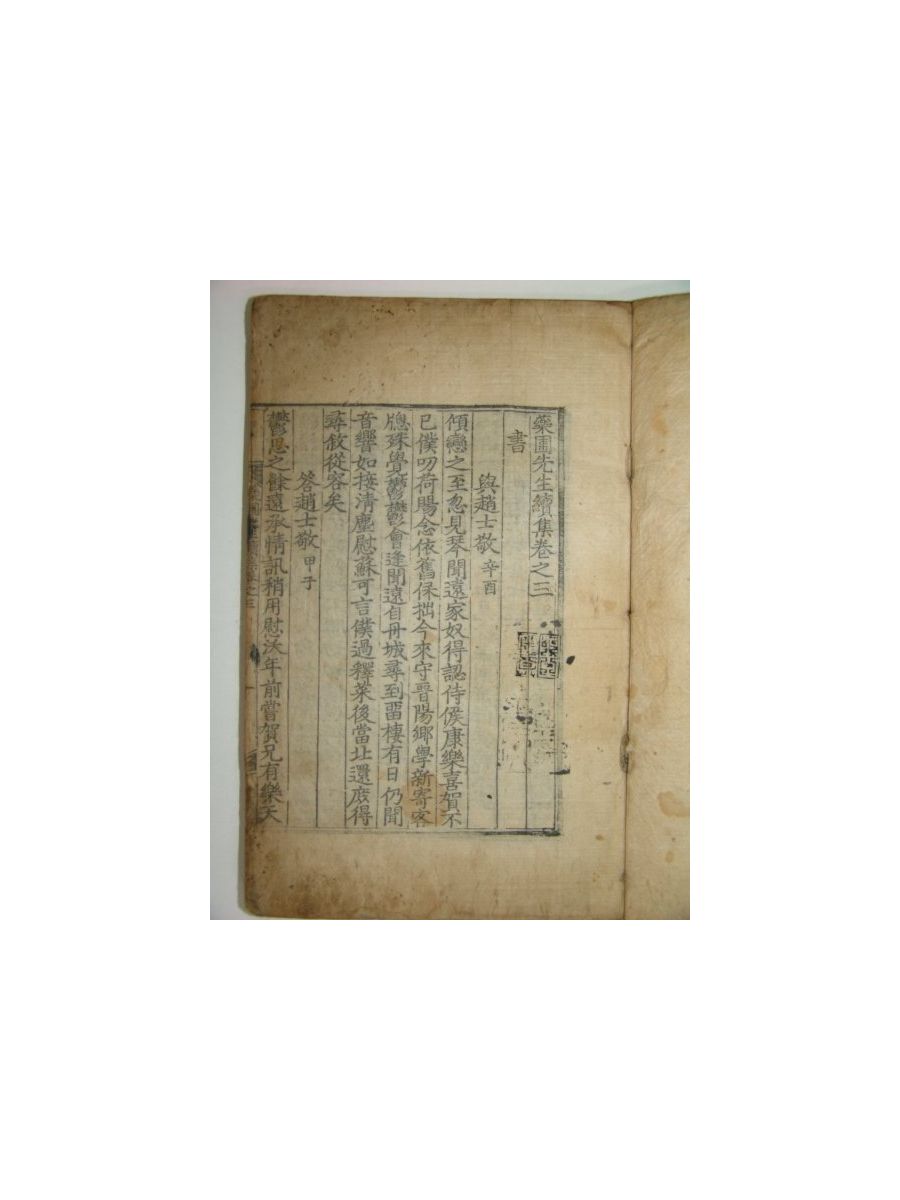 藥圃先生續集卷之三
書
與趙士敬 辛酉
傾戀之至忽見琴聞遠家奴得認侍候康樂喜賀不
已僕叨荷賜念依舊保拙今來守晉陽鄉學新寄客
牕殊覺鬱鬱會逢聞遠自丹城尋到畱棲有日仍聞
音響如接淸塵慰蘇可言僕過釋菜後當北還庶得
尋敘從容矣
答趙士敬 甲子
鬱思之餘遠承情訊稍用慰沃年前嘗賀兄有樂天